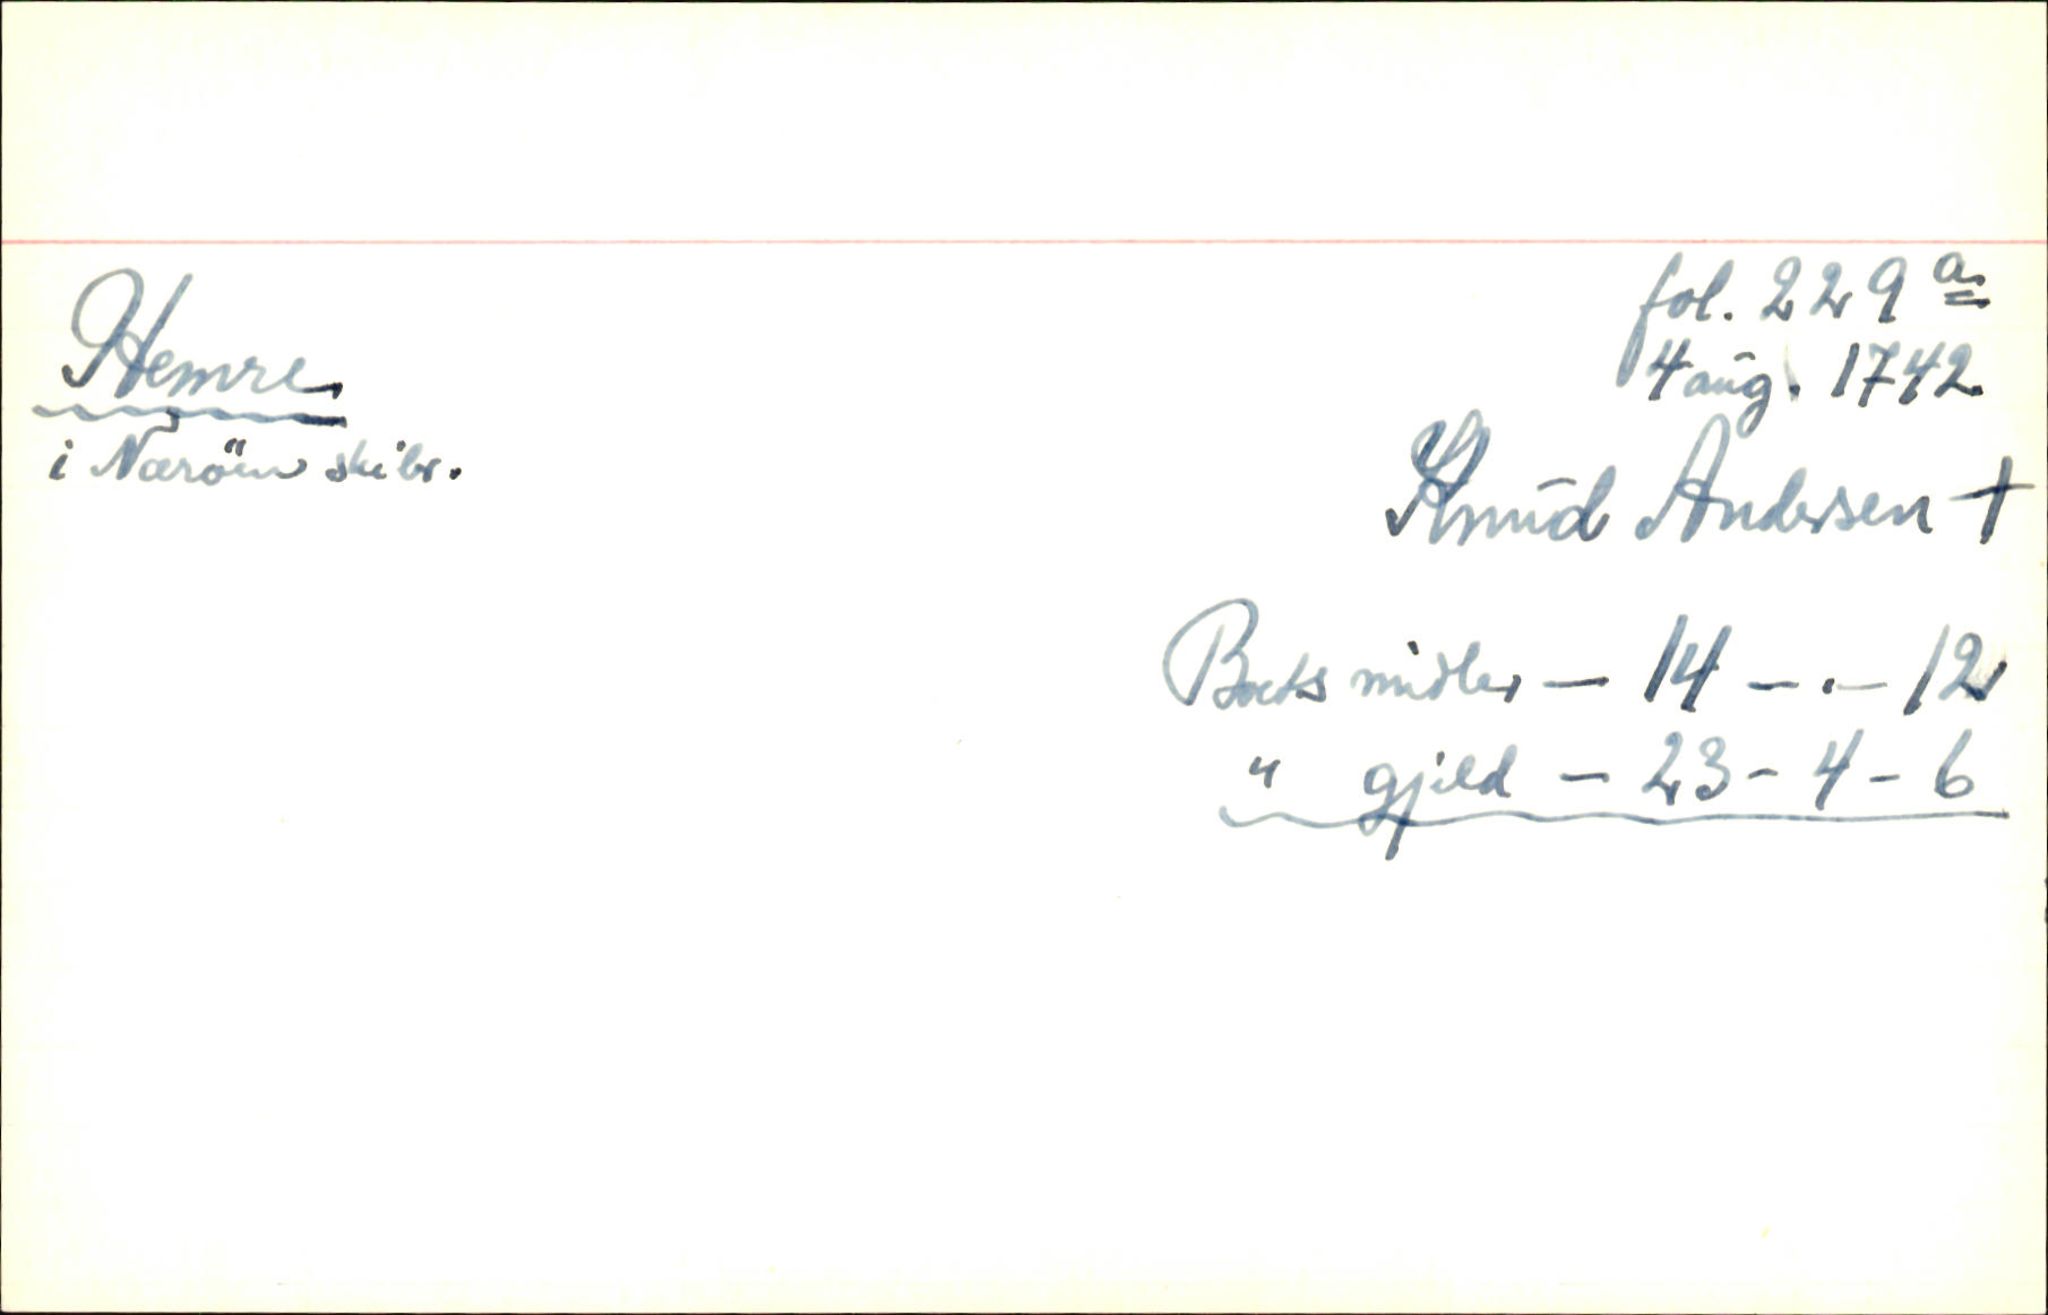 fol. 229 a
4 aug. 1742
Hemre
i Naröen skibr.
Knud Andersen †
Boets midler — 14 — . — 12
" gjeld — 23 - 4 - 6